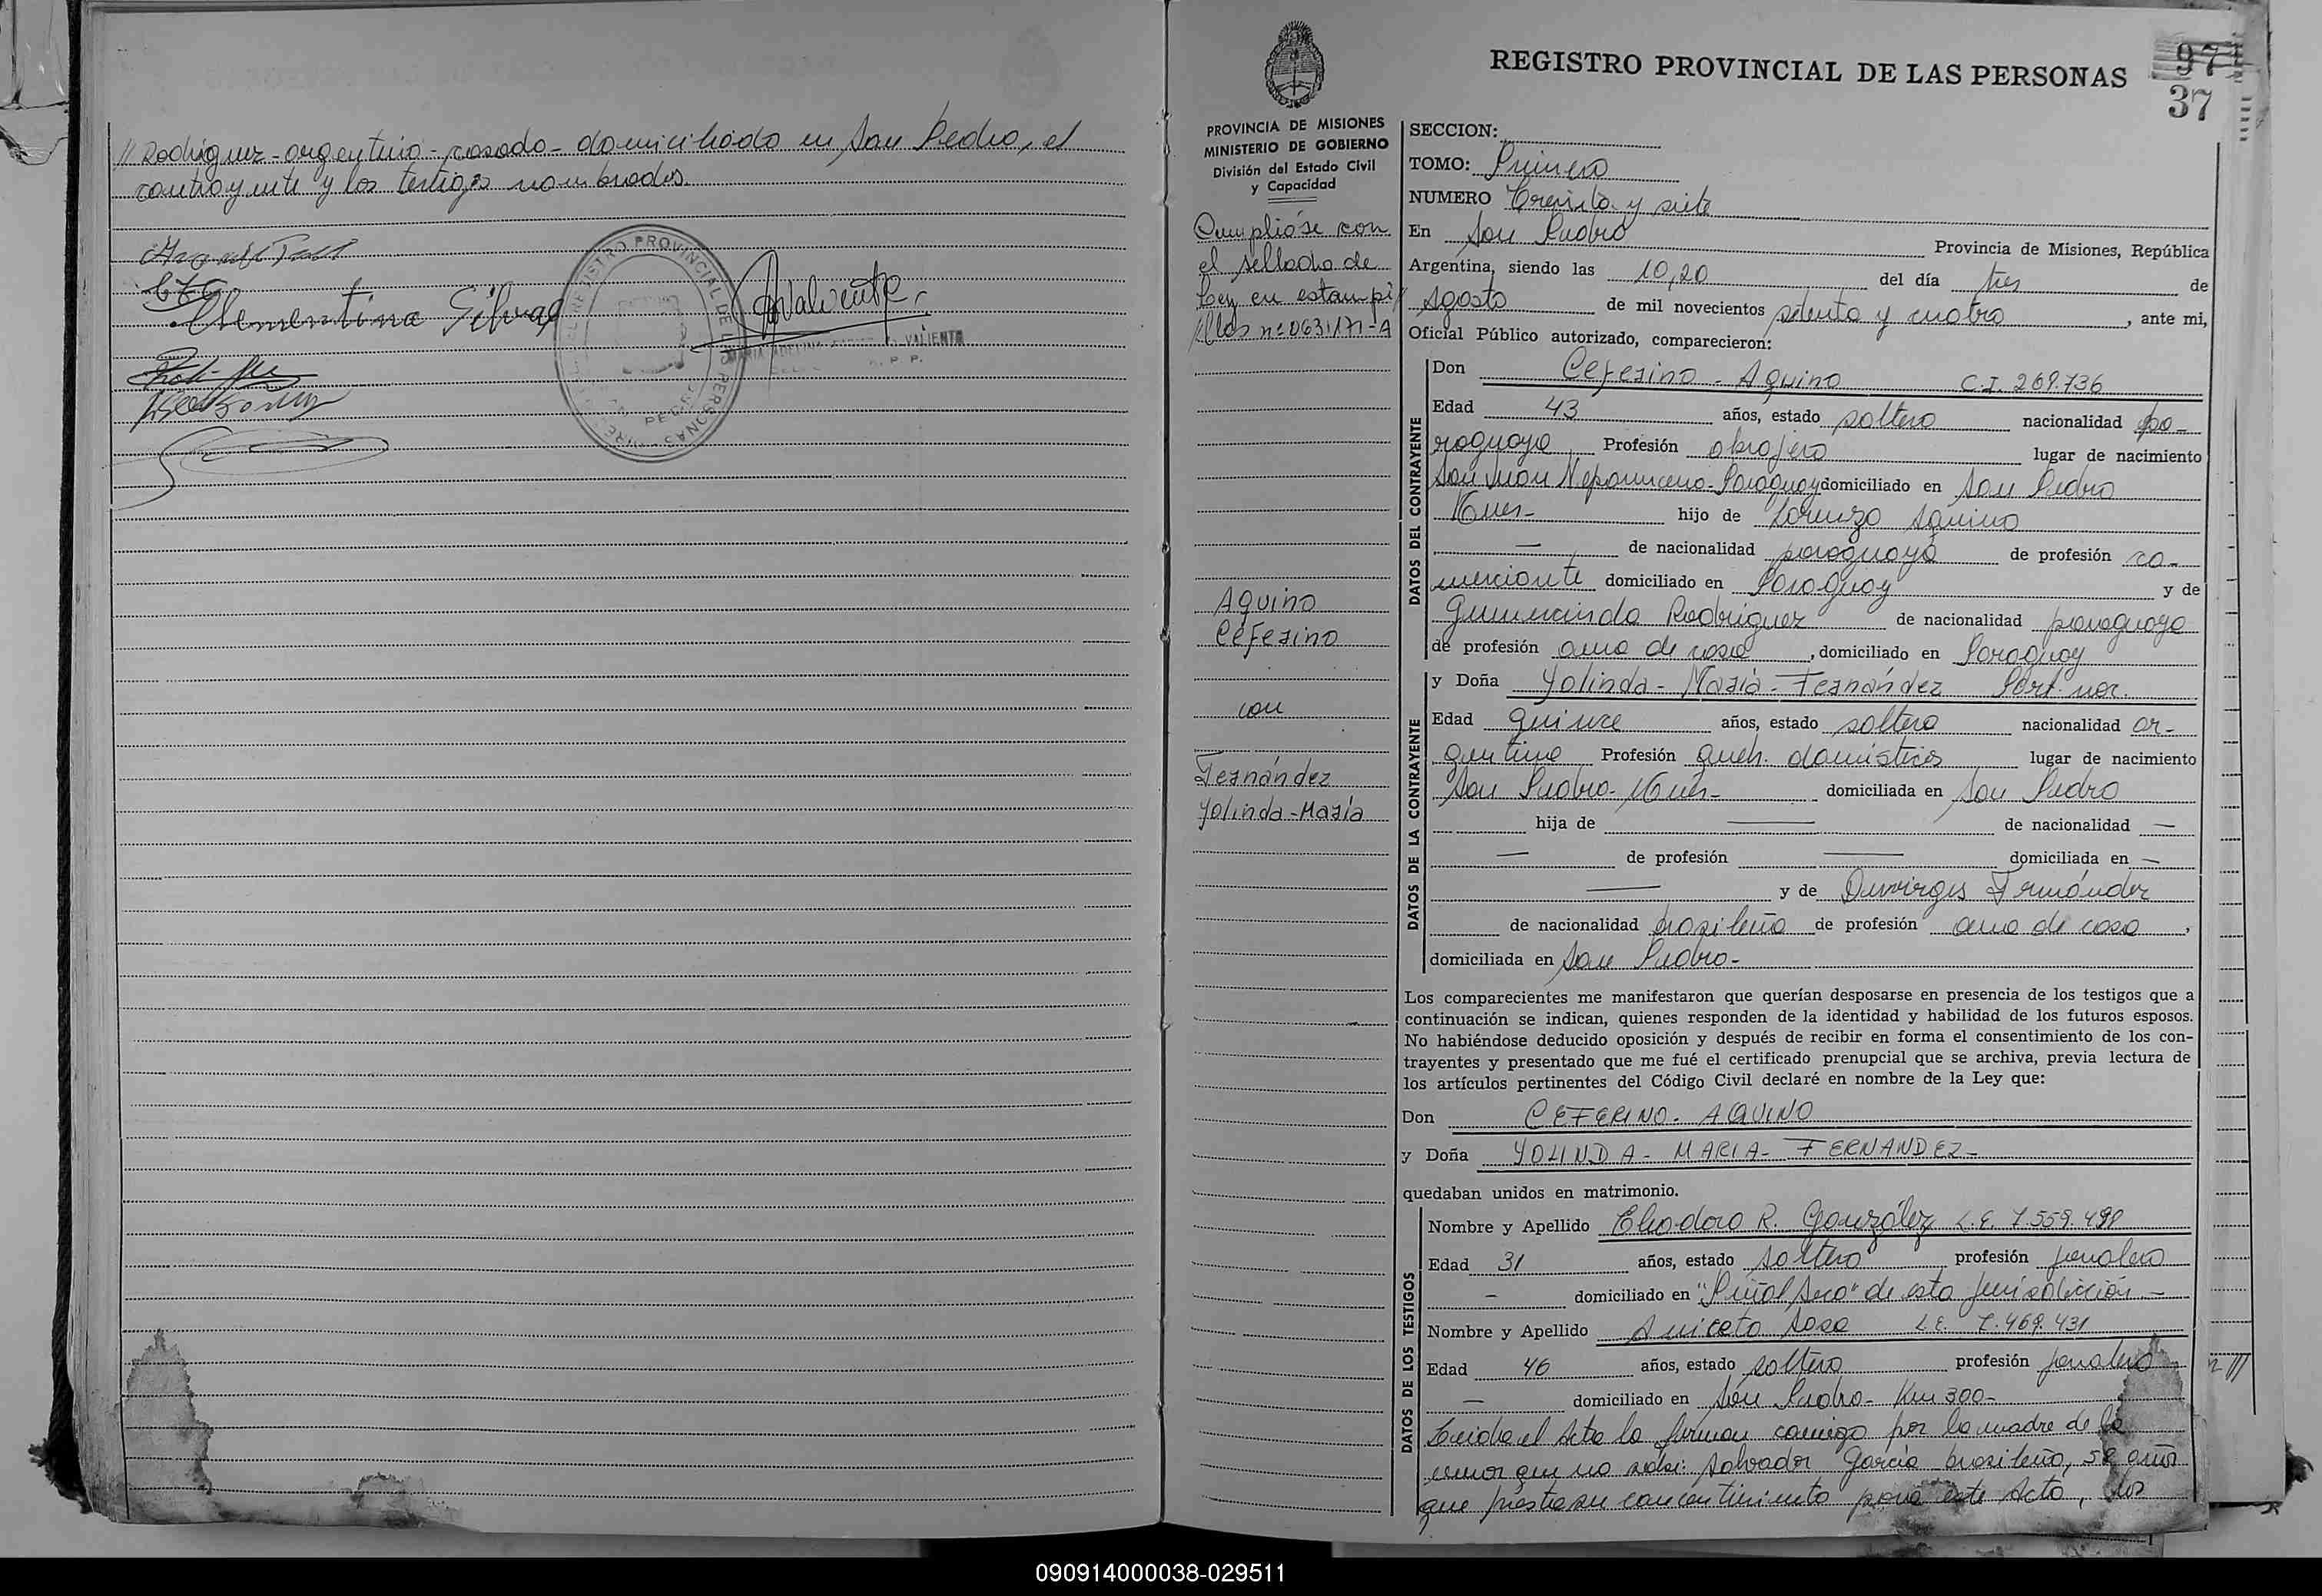 // Rodriguez - argentino - casado - domiciliado en San Pedro, el
contrayente y los testigos nombrados.
Clementina Silva
REGISTRO PROVINCIAL DE LAS PERSONAS
97
37
PROVINCIA DE MISIONES
MINISTERIO DE GOBIERNO
División del Estado Civil
y Capacidad
Cumplióse con
el sellado de
Ley en estampi
llas nº 0631171-A
Aquino
Ceferino
con
Fernández
Yolinda - María
SECCION:
TOMO: Primero
NUMERO Treinta y siete
En San Pedro Provincia de Misiones, República
Argentina, siendo las 10,20 del día tres de
Agosto de mil novecientos setenta y cuatro, ante mi,
Oficial Público autorizado, comparecieron:
DATOS DEL CONTRAYENTE
Don Ceferino - Aquino C.I. 269.736
Edad 43 años, estado soltero nacionalidad pa-
raguaya Profesión obrajero lugar de nacimiento
San Juan Nepomuceno - Paraguay domiciliado en San Pedro
Mnes - hijo de Lorenzo Aquino
— de nacionalidad paraguaya de profesión co-
merciante domiciliado en Paraguay y de
Gumercinda Rodriguez de nacionalidad paraguaya
de profesión ama de casa, domiciliado en Paraguay
DATOS DE LA CONTRAYENTE
y Doña Yolinda - María - Fernández
Edad quince años, estado soltera nacionalidad ar-
gentina Profesión queh. domésticos lugar de nacimiento
San Pedro - Mnes - domiciliada en San Pedro
hija de — de nacionalidad —
— de profesión — domiciliada en —
— y de Fernández
de nacionalidad brasileña de profesión ama de casa,
domiciliada en San Pedro -
Los comparecientes me manifestaron que querían desposarse en presencia de los testigos que a
continuación se indican, quienes responden de la identidad y habilidad de los futuros esposos.
No habiéndose deducido oposición y después de recibir en forma el consentimiento de los con-
trayentes y presentado que me fué el certificado prenupcial que se archiva, previa lectura de
los artículos pertinentes del Código Civil declaré en nombre de la Ley que:
Don CEFERINO - AQUINO
y Doña YOLINDA - MARIA - FERNANDEZ -
quedaban unidos en matrimonio.
DATOS DE LOS TESTIGOS
Nombre y Apellido Eleodoro R. González L.E. 7.559.498
Edad 31 años, estado soltero profesión jornalero
— domiciliado en "Piñal Seco" de esta jurisdicción -
Nombre y Apellido Aniceto Sosa L.E. 7.469.431
Edad 46 años, estado soltero profesión jornalero
— domiciliado en San Pedro - Km 300 -
Leída el Acta la firman conmigo por la madre de la
menor que no sabe: Salvador García brasileño, 58 años
que presta su concentimiento para este Acto, los
090914000038-029511